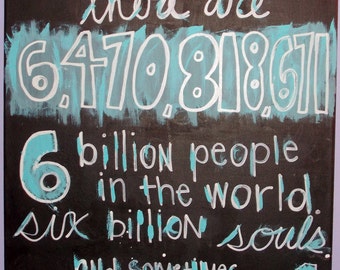 there are
6,470,818,671
6 billion people
in the world.
six billion souls.
and sometimes